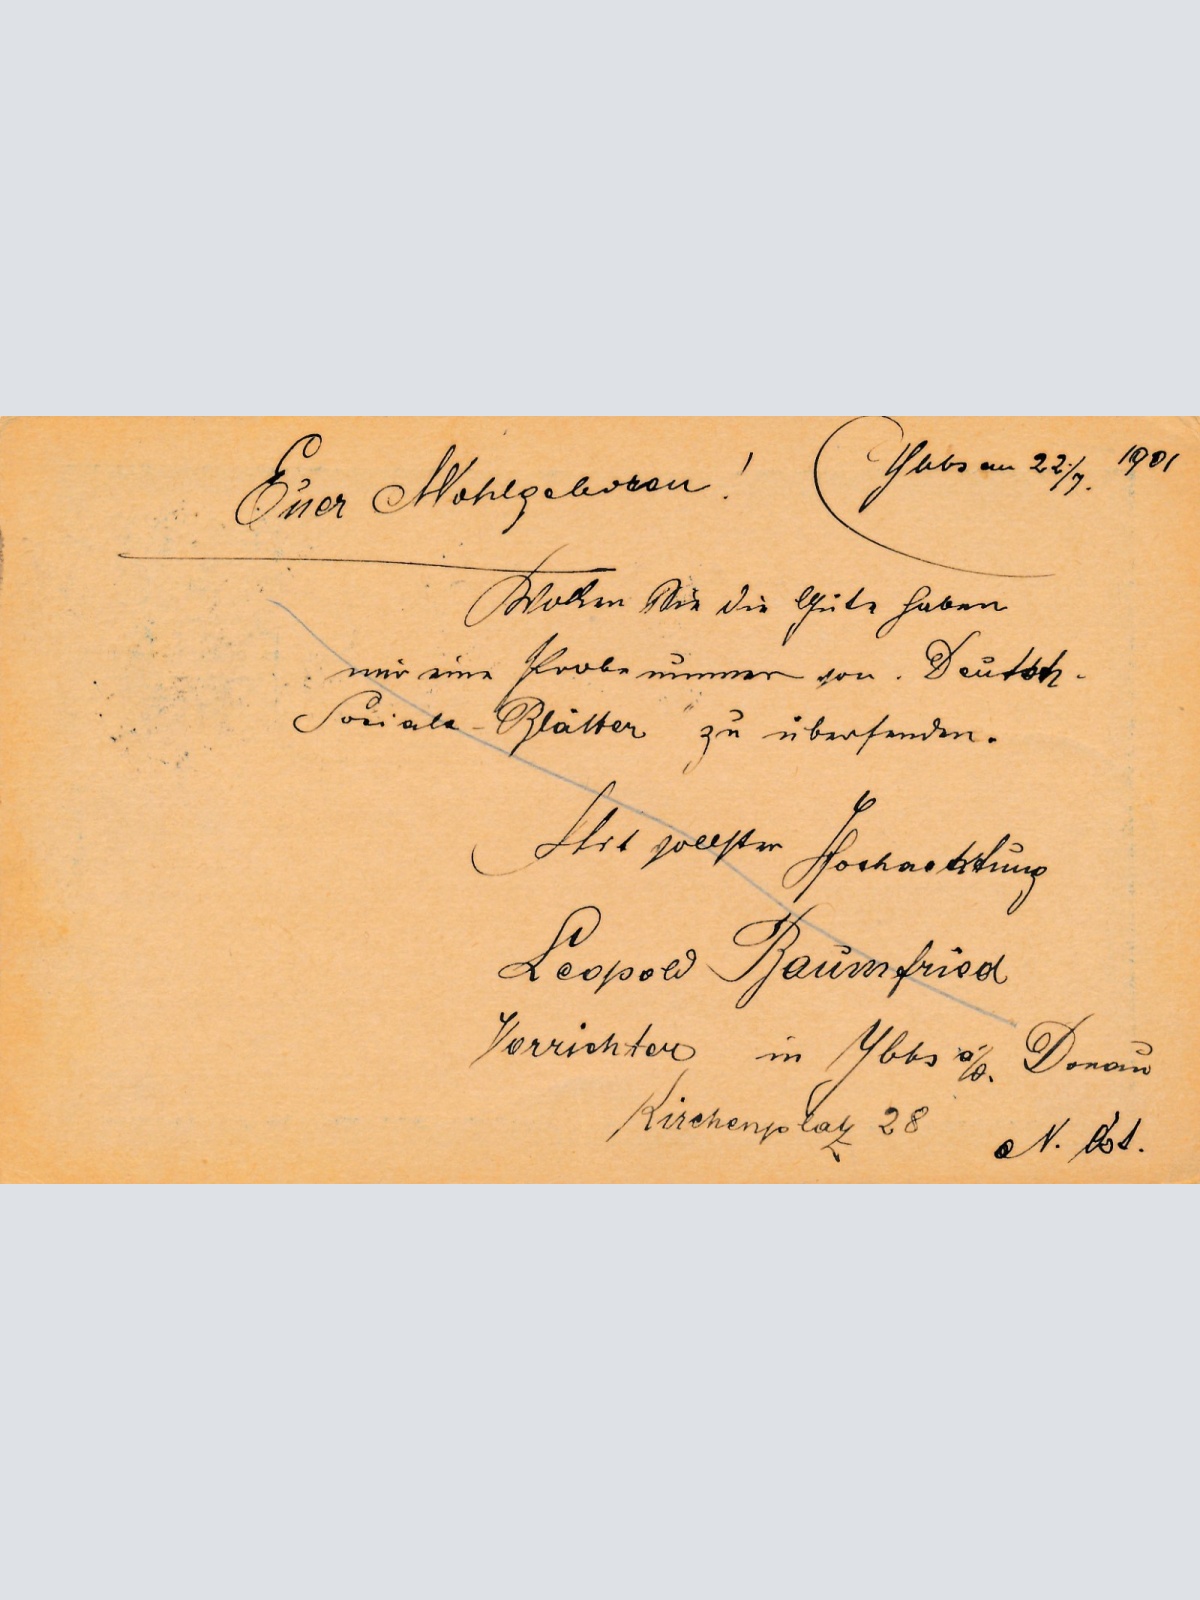 Ybbs am 22/7. 1901
Euer Wohlgeboren!
Wollen Sie die Güte haben
mir eine Probenummer von "Deutsch-
Soziale-Blätter" zu übersenden.
Mit vollster Hochachtung
Leopold Baumfried
Vorrichter in Ybbs a/d. Donau
Kirchenplatz 28 N. Öst.